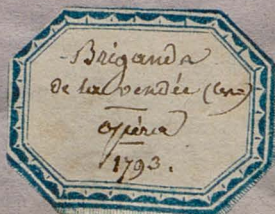 Brigands
de la vendée (les)
opéra
1793.